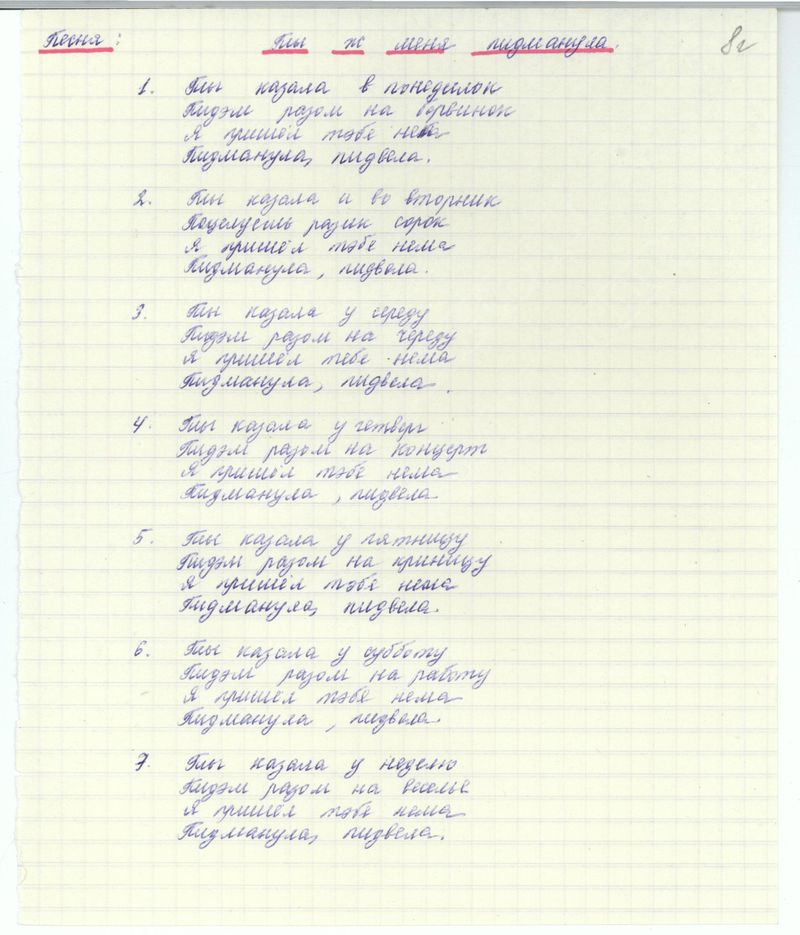 Песня: Ты ж меня пидманула. 8г
1. Ты казала в понедилок
Пидэм разом на борвинок
Я пришёл тэбе нема
Пидманула, пидвела.
2. Ты казала и во вторник
Поцелуешь разик сорок
Я пришёл тэбе нема
Пидманула, пидвела.
3. Ты казала у середу
Пидэм разом на череду
Я пришёл тебе нема
Пидманула, пидвела.
4. Ты казала у четверг
Пидэм разом на концерт
Я пришёл тэбе нема
Пидманула, пидвела
5. Ты казала у пятницу
Пидэм разом на криницу
Я пришёл тэбе нема
Пидманула, пидвела.
6. Ты казала у субботу
Пидэм разом на работу
Я пришёл тэбе нема
Пидманула, пидвела.
7. Ты казала у неделю
Пидэм разом на веселье
Я пришёл тэбе нема
Пидманула, пидвела.